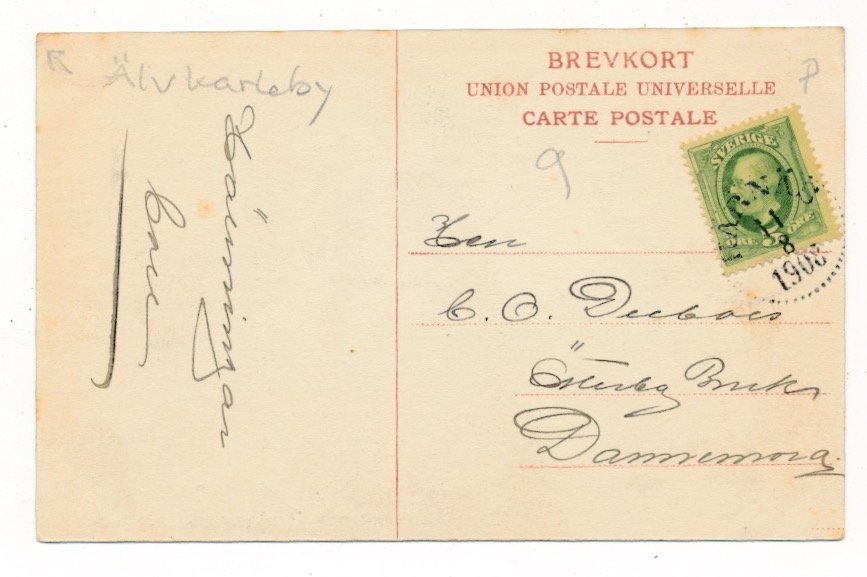 Älvkarleby
Hälsningar
BREVKORT
UNION POSTALE UNIVERSELLE
CARTE POSTALE
P
9
SVERIGE
5
ÖRE
11
8
1908
Herr
C. O. Dubois
Österby Bruk
Dannemora